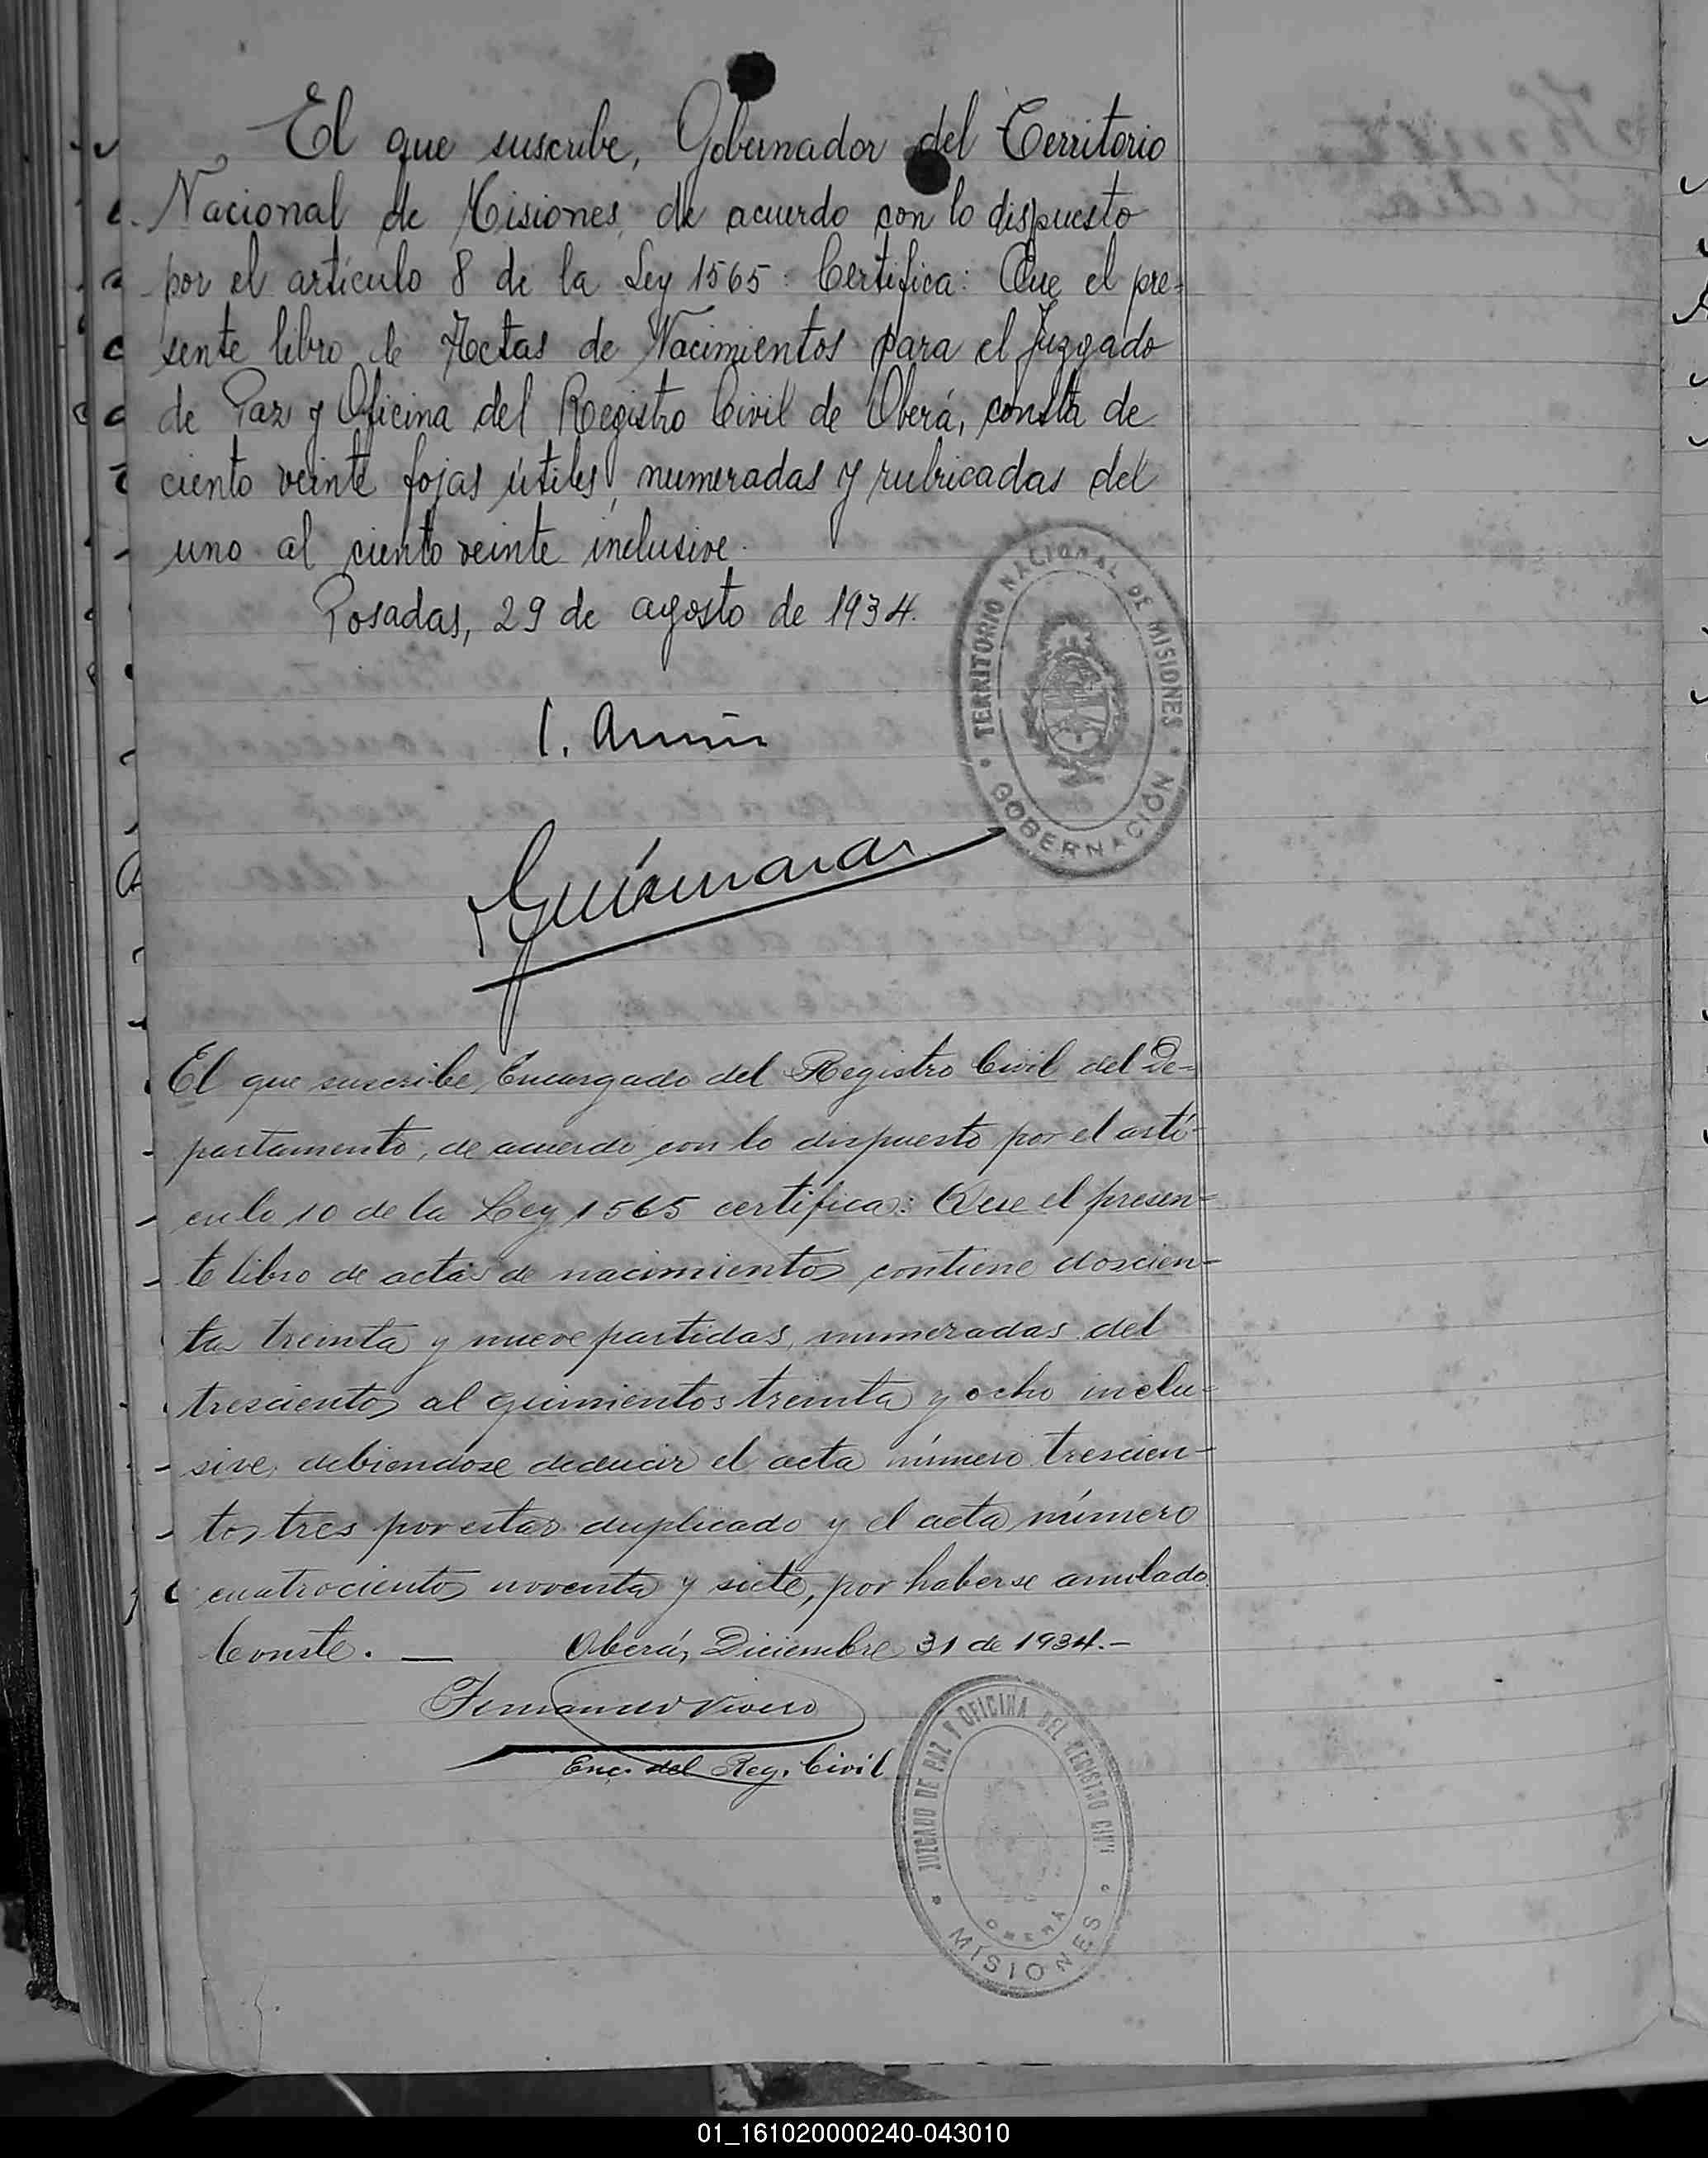 El que suscribe, Gobernador del Territorio
Nacional de Misiones, de acuerdo con lo dispuesto
por el artículo 8 de la Ley 1565: Certifica: Que el pre-
sente libro de Actas de Nacimientos para el Juzgado
de Paz y Oficina del Registro Civil de Oberá, consta de
ciento veinte fojas útiles, numeradas y rubricadas del
uno al ciento veinte inclusive.
Posadas, 29 de agosto de 1934.
TERRITORIO NACIONAL DE MISIONES
GOBERNACIÓN
El que suscribe, Encargado del Registro Civil del De-
partamento, de acuerdo con lo dispuesto por el artí-
culo 10 de la Ley 1565 certifica: Que el presen-
te libro de actas de nacimientos contiene doscien-
tas treinta y nueve partidas, numeradas del
trescientos al quinientos treinta y ocho inclu-
sive, debiendose deducir el acta número trescien-
tos tres por estar duplicado y el acta número
cuatrocientos noventa y siete, por haberse anulado.
Conste. — Oberá, Diciembre 31 de 1934.-
Fernando Vivero
Enc. del Reg. Civil
JUZGADO DE PAZ Y OFICINA DEL REGISTRO CIVIL
OBERÁ
MISIONES
01_161020000240-043010